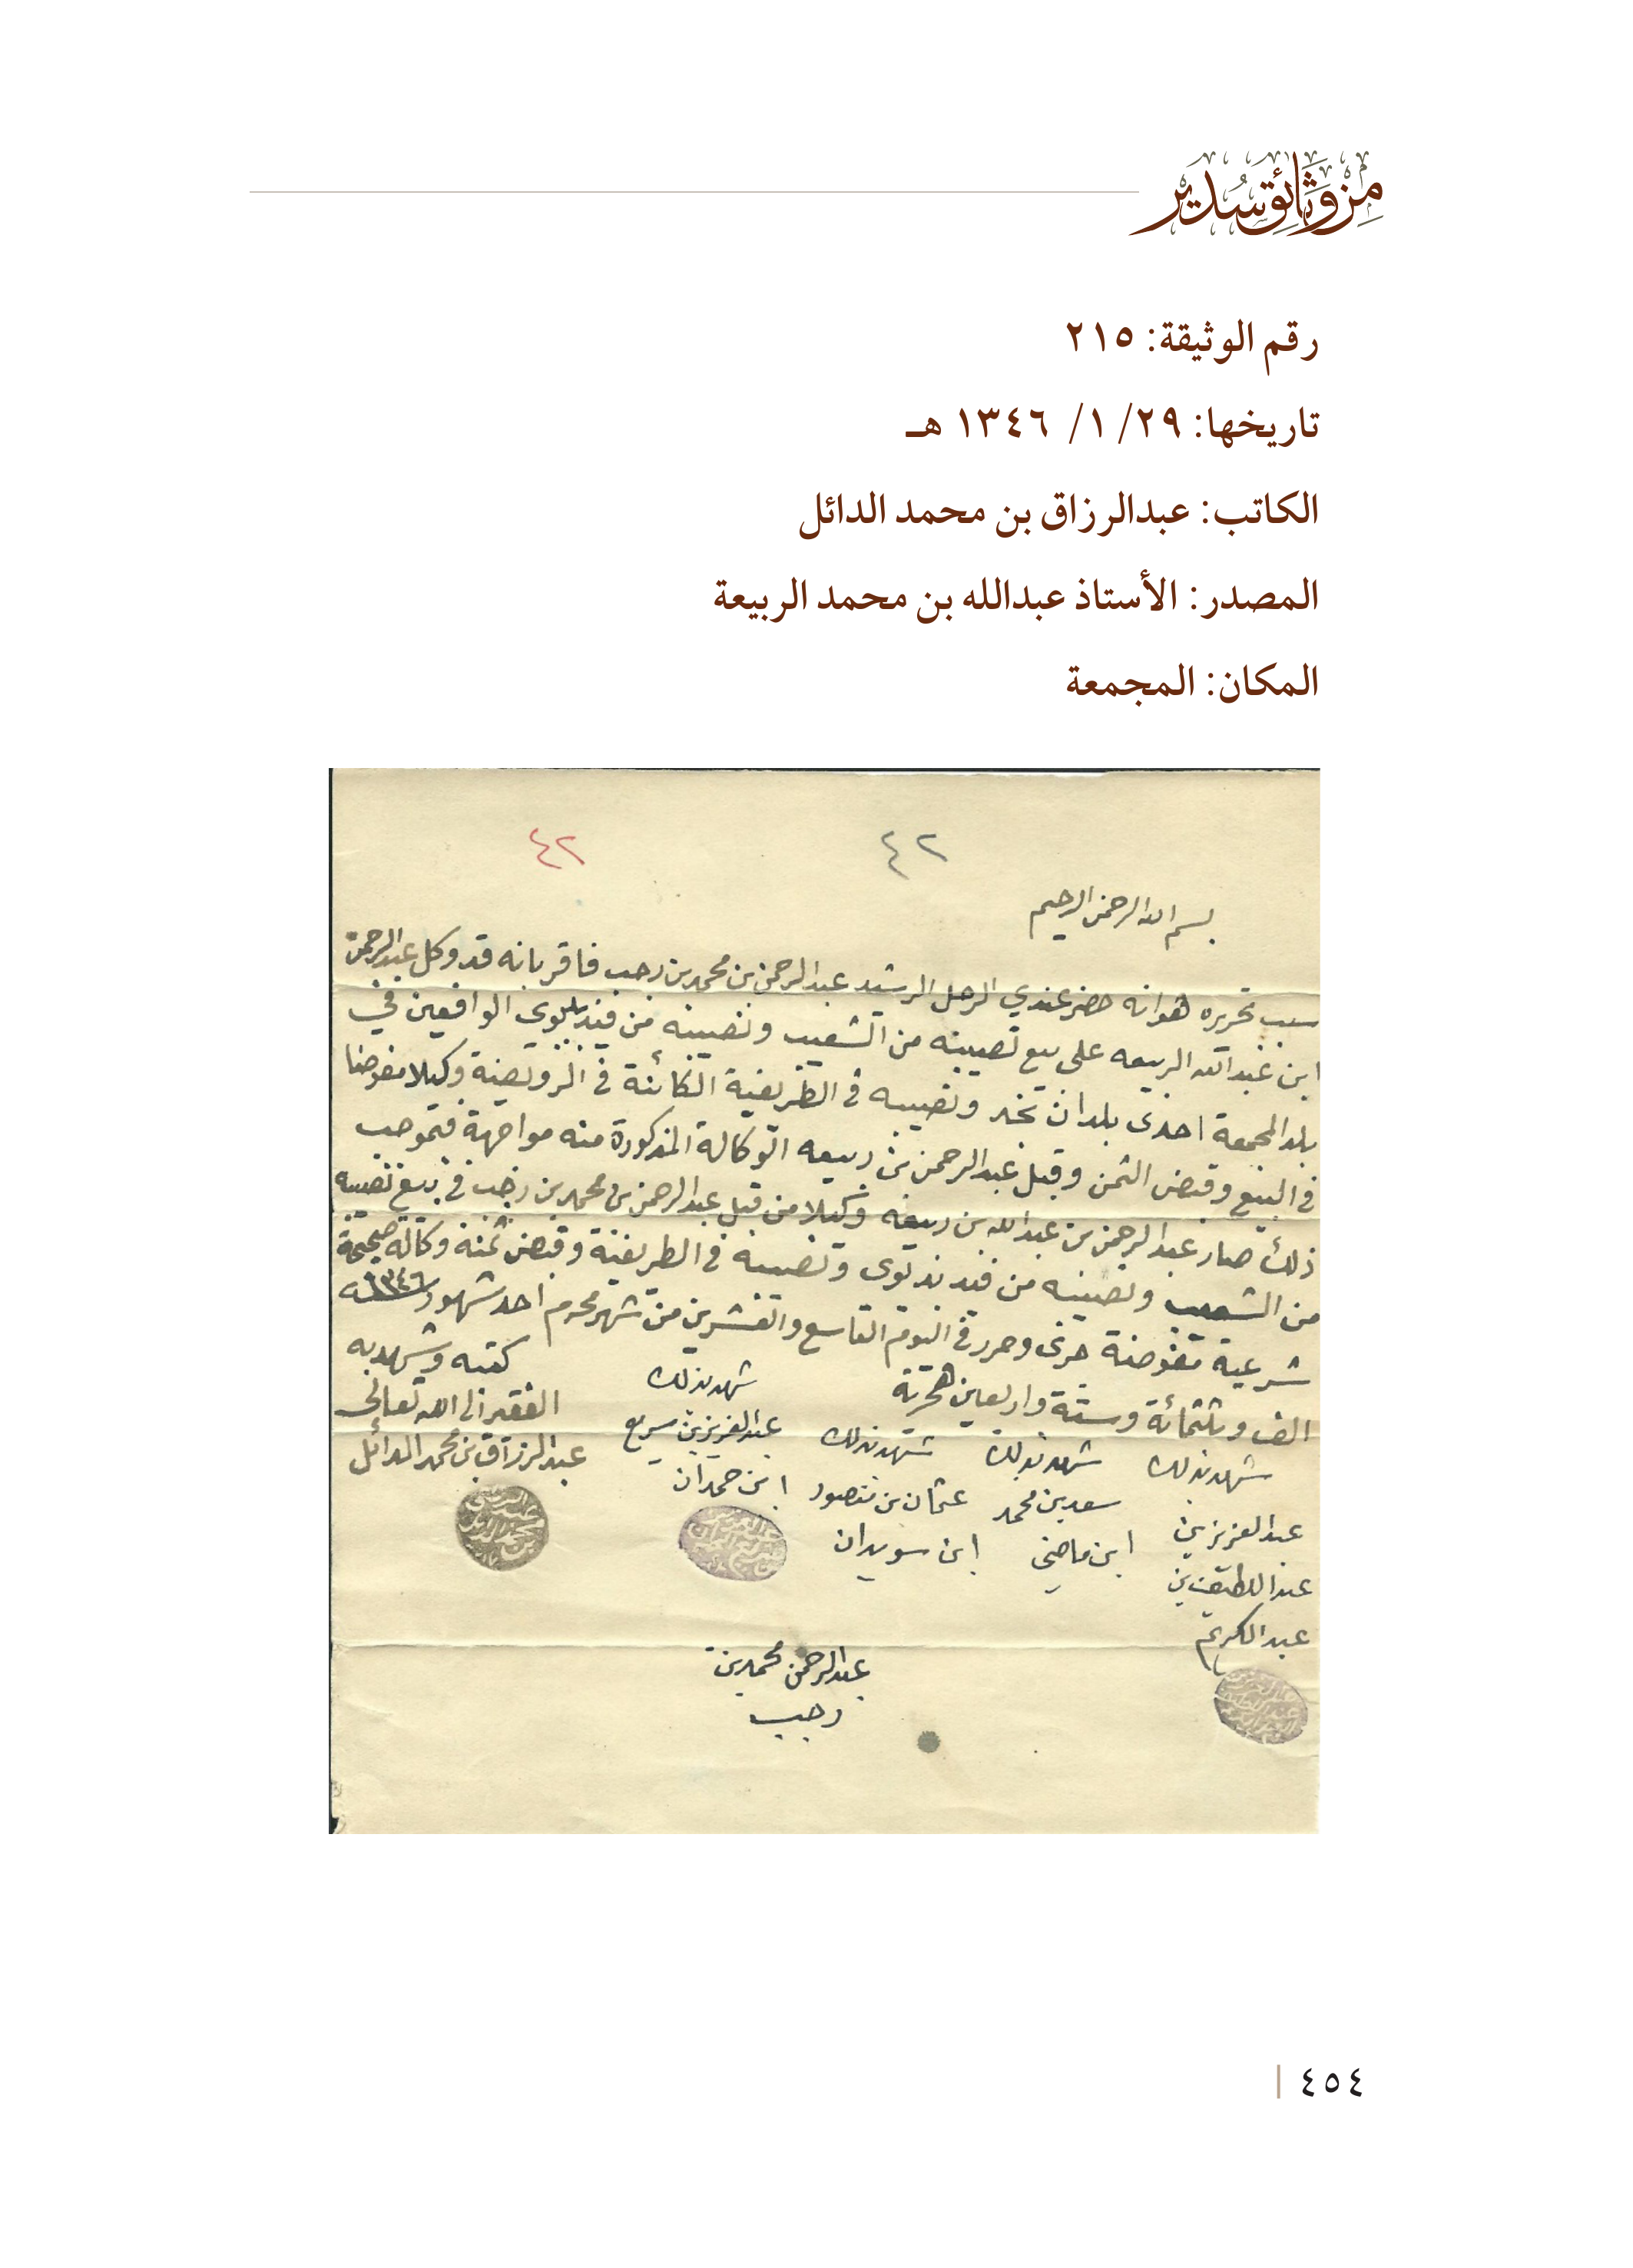 من وثائق سدير
رقم الوثيقة: ٢١٥
تاريخها: ٢٩/ ١/ ١٣٤٦ هـ
الكاتب: عبدالرزاق بن محمد الدائل
المصدر: الأستاذ عبدالله بن محمد الربيعة
المكان: المجمعة
٤٢ ٤٢
بسم الله الرحمن الرحيم
سبب تحريره هو انه حضر عندي الرجل الرشيد عبدالرحمن بن محمد بن رجب فاقر بانه قد وكل عبدالرحمن
ابن عبدالله الربيعه على بيع نصيبه من الشعيب ونصيبه من فيد الواقعين في
بلد المجمعة احدى بلدان نجد ونصيبه في الطريفية الكائنة في الرويضة وكيلا مفوضا
في البيع وقبض الثمن وقبل عبدالرحمن بن ربيعه الوكالة المذكورة منه مواجهة فبموجب
ذلك صار عبدالرحمن بن عبدالله بن ربيعه وكيلا من قبل عبدالرحمن بن محمد بن رجب في بيع نصيبه
من الشعيب ونصيبه من فيد ونصيبه في الطريفية وقبض ثمنه وكالة صحيحة
شرعية مفوضة جرى وحرر في اليوم التاسع والعشرين من شهر محرم احد شهور سنة ١٣٤٦
الف وثلثمائة وستة واربعين هجرية
شهد بذلك عبدالعزيز بن عبداللطيف بن عبدالكريم
شهد بذلك سعد بن محمد ابن ماضي
شهد بذلك عثمان بن منصور ابن سويدان
شهد بذلك عبدالعزيز بن سريع ابن حمدان
كتبه وشهد به الفقير الى الله تعالى عبدالرزاق بن محمد الدائل
عبدالرحمن محمد بن
رجب
٤٥٤